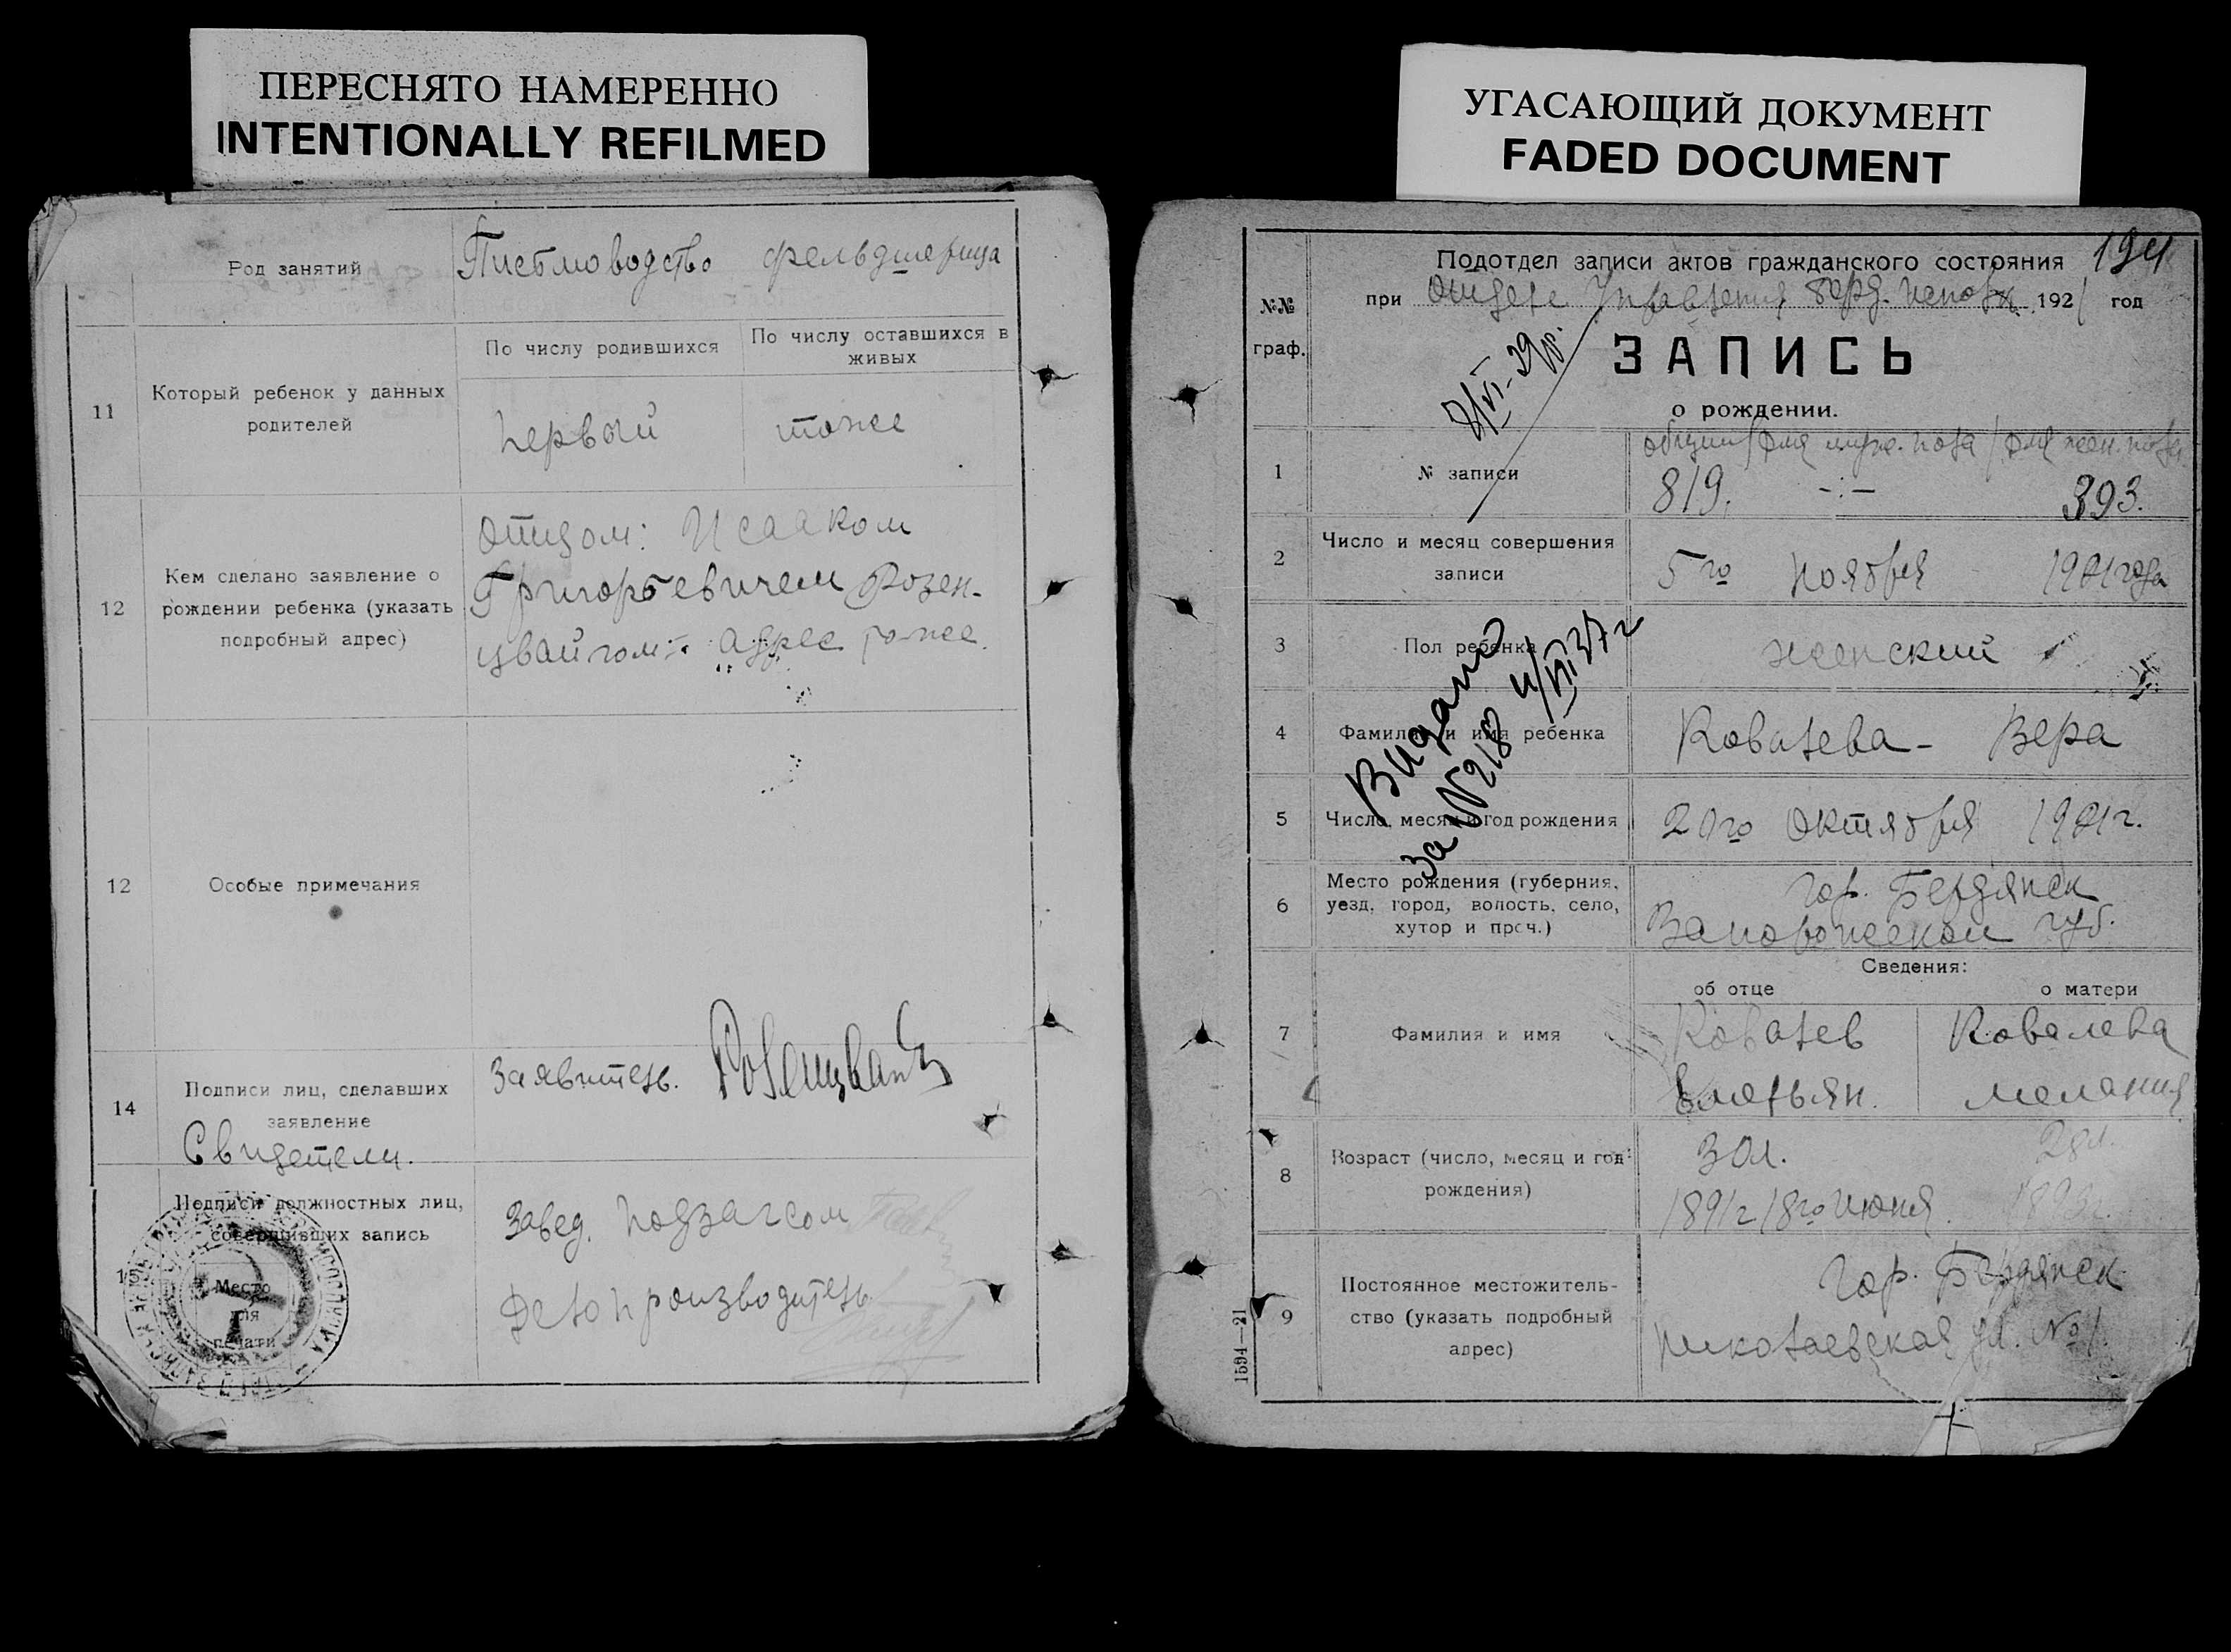 ПЕРЕСНЯТО НАМЕРЕННО
INTENTIONALLY REFILMED
Род занятий
Писмоводство фельдшерица
11
Который ребенок у данных родителей
По числу родившихся
По числу оставшихся в живых
первый
тоже
12
Кем сделано заявление о рождении ребенка (указать подробный адрес)
отцом: Исааком
Григорьевичем Розен-
цвайгом: адрес тоже.
12
Особые примечания
14
Подписи лиц, сделавших заявление
Свидетели.
заявитель. Розенцвайг
15
Подписи должностных лиц, совершивших запись
Место для печати
Завед. подзагсом
Делопроизводитель
УГАСАЮЩИЙ ДОКУМЕНТ
FADED DOCUMENT
194
№№ граф.
Подотдел записи актов гражданского состояния
при отделе Управления берд. 1921 год
ЗАПИСЬ
о рождении.
1
№ записи
общий/для муж. пола/для жен. пола
819. -:- 393.
2
Число и месяц совершения записи
5го ноября 1921 года
3
Пол ребенка
женский
4
Фамилия и имя ребенка
Ковалева - Вера
Видано
за № 218 4/VII 37 г
5
Число, месяц и год рождения
20го октября 1921 г.
6
Место рождения (губерния, уезд, город, волость, село, хутор и проч.)
гор. Бердянск
Запорожской губ.
Сведения:
об отце
о матери
7
Фамилия и имя
Ковалев
Емельян.
Ковалева
мелания
8
Возраст (число, месяц и год рождения)
30 л.
1891 г 18го июня.
28 л.
1893 г.
9
Постоянное местожительство (указать подробный адрес)
гор. Бердянск
николаевская ул. № 1.
1594—21